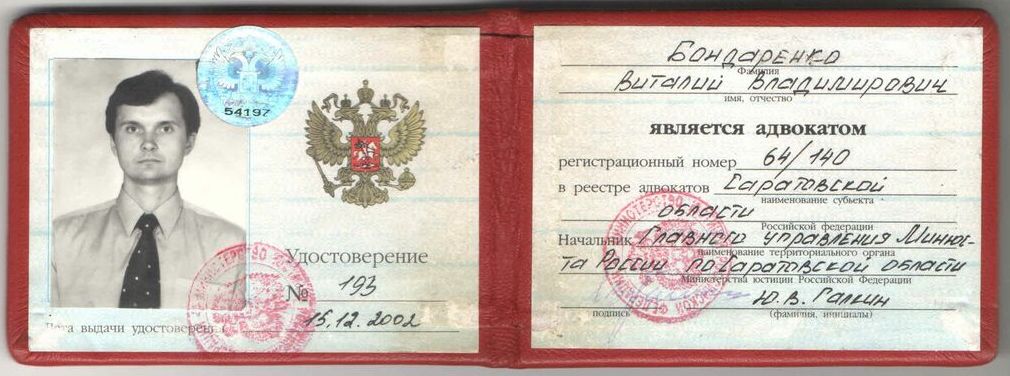 54197
Удостоверение
№ 193
Дата выдачи удостоверения
15.12.2002
Бондаренко
Фамилия
Виталий Владимирович
имя, отчество
является адвокатом
регистрационный номер 64/140
в реестре адвокатов Саратовской
наименование субъекта
области
Российской федерации
Начальник Главного управления Минюс-
наименование территориального органа
та России по Саратовской области
Министерства юстиции Российской Федерации
Ю.В. Галкин
подпись (фамилия, инициалы)